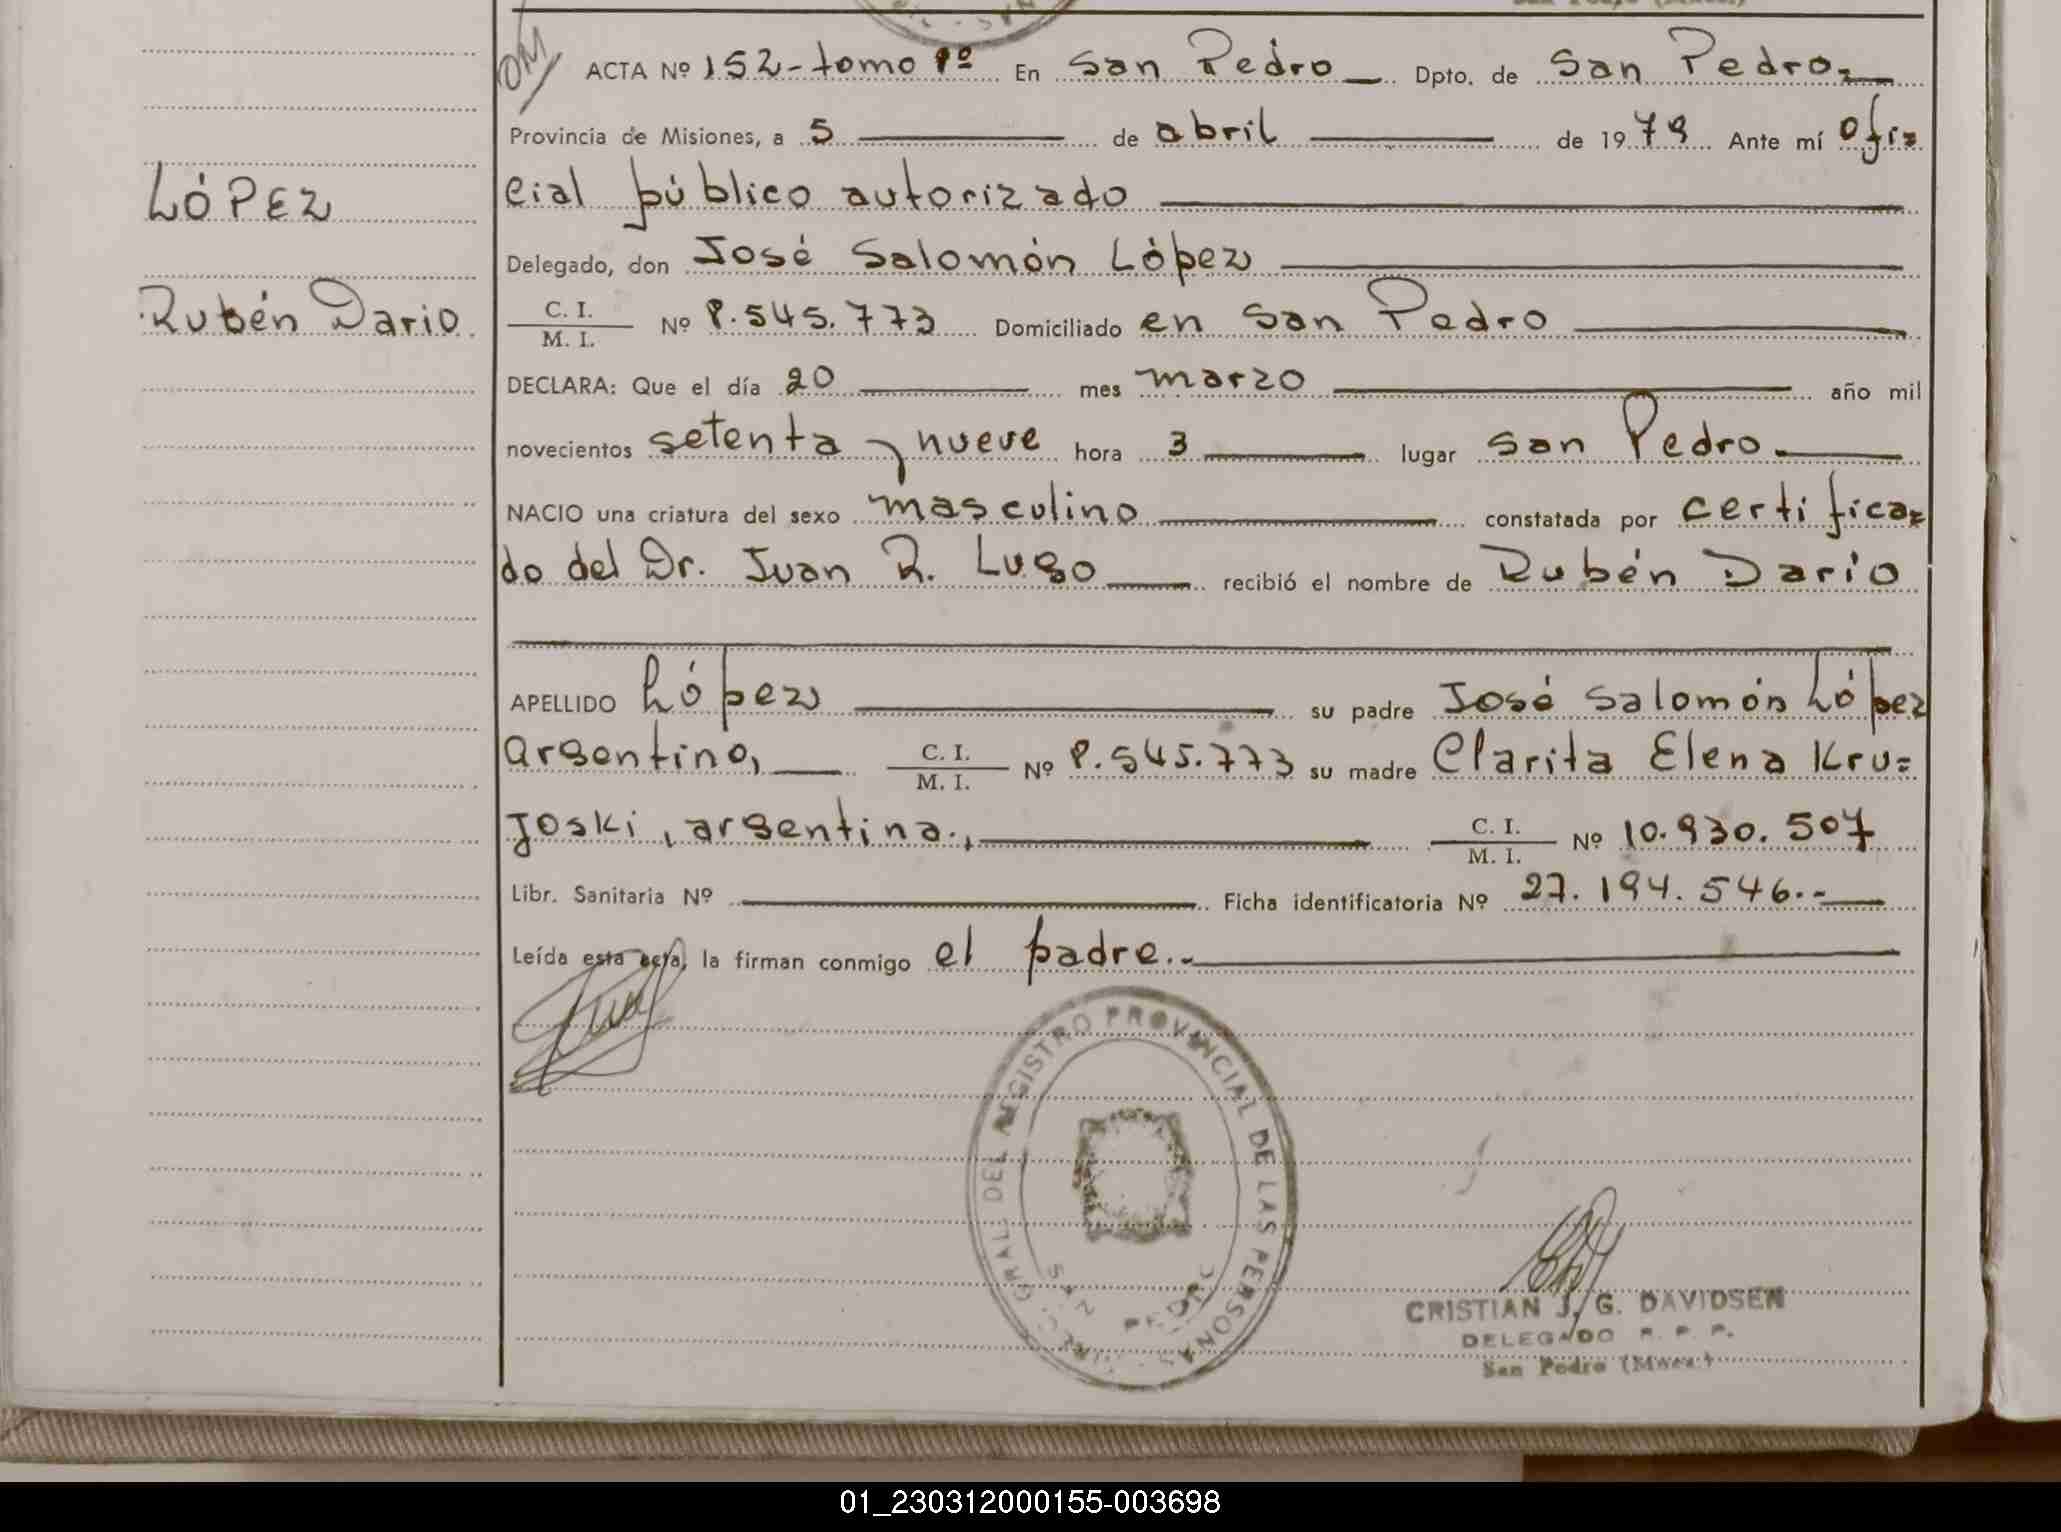 ACTA Nº 152-tomo 1º En San Pedro Dpto. de San Pedro=
Provincia de Misiones, a 5 de abril de 1979 Ante mí ofi=
cial público autorizado
LÓPEZ
Delegado, don José Salomón López
Rubén Dario
C. I.
M. I. Nº 8.545.773 Domiciliado en San Pedro
DECLARA: Que el día 20 mes marzo año mil
novecientos setenta y nueve hora 3 lugar San Pedro
NACIO una criatura del sexo masculino constatada por certifica=
do del Dr. Juan R. Lugo recibió el nombre de Rubén Dario
APELLIDO López su padre José Salomón López
argentino, C. I.
M. I. Nº 8.545.773 su madre Clarita Elena Kru=
joski, argentina., C. I.
M. I. Nº 10.930.507
Libr. Sanitaria Nº Ficha identificatoria Nº 27.194.546.-
Leída esta acta, la firman conmigo el padre.-
GRAL. DEL REGISTRO PROVINCIAL DE LAS PERSONAS
SAN PEDRO
CRISTIAN J. G. DAVIDSEN
DELEGADO R. P. P.
San Pedro (Mnes.)
01_230312000155-003698